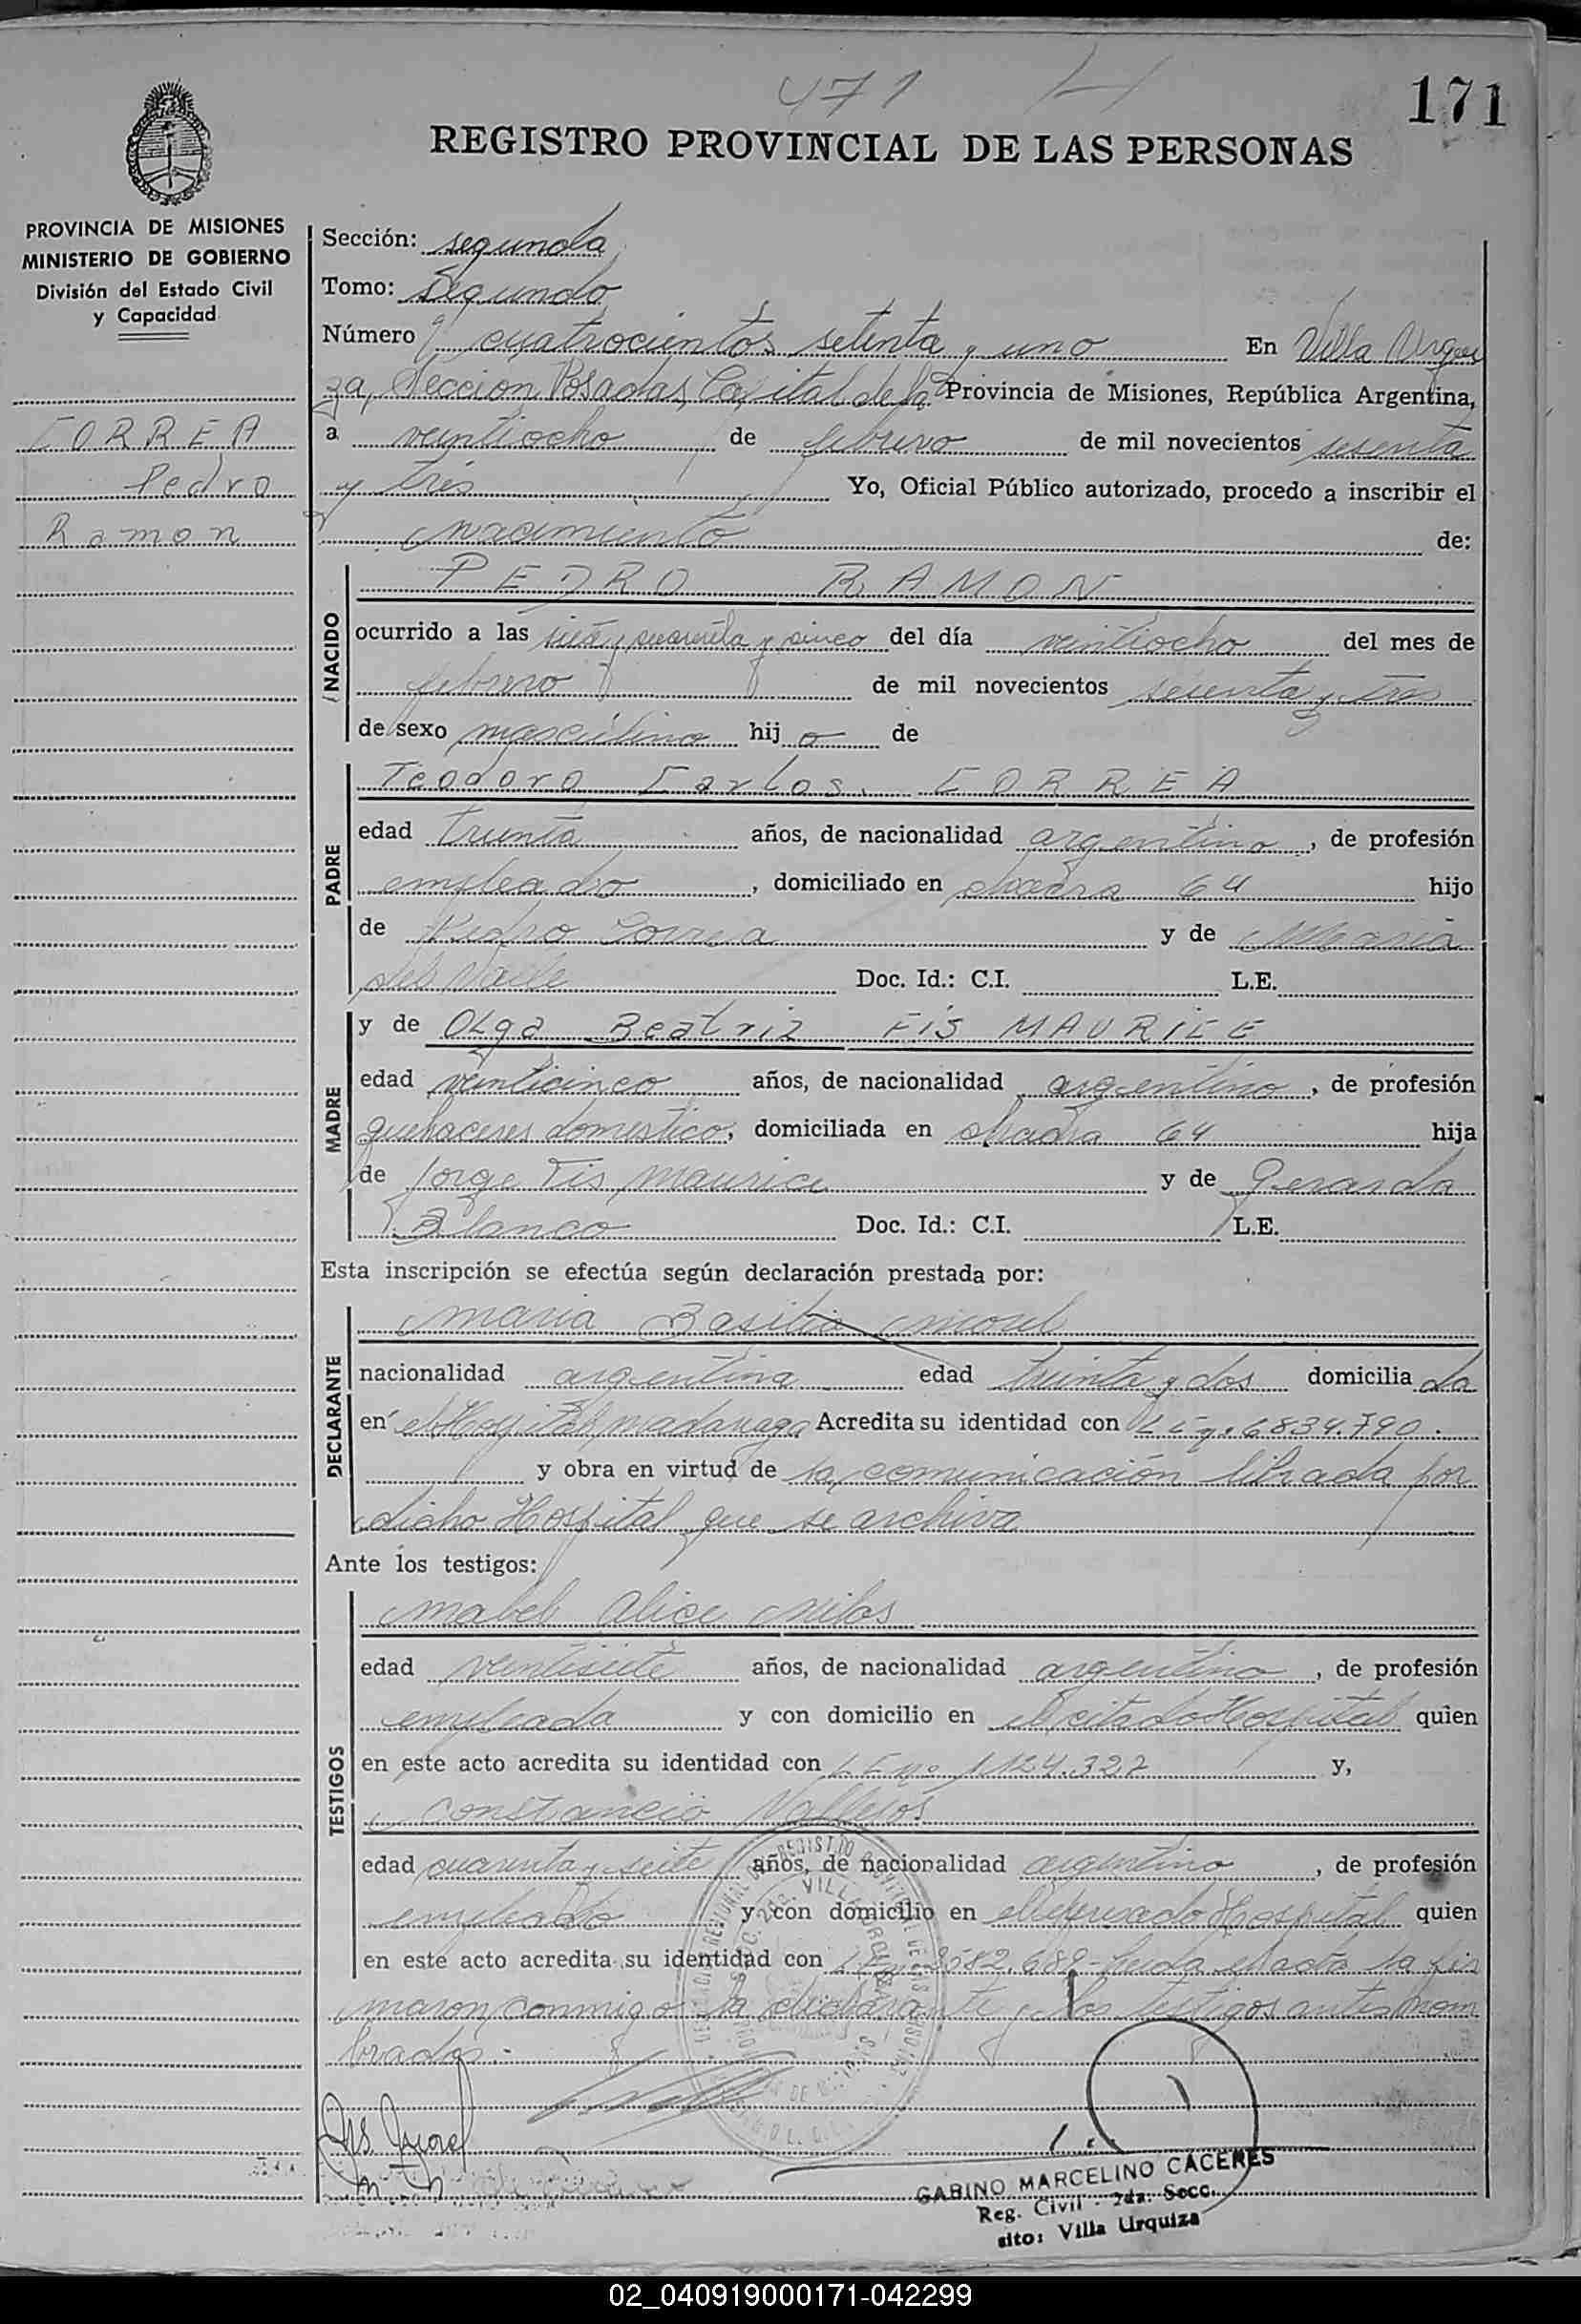 471
171
REGISTRO PROVINCIAL DE LAS PERSONAS
PROVINCIA DE MISIONES
MINISTERIO DE GOBIERNO
División del Estado Civil
y Capacidad
CORREA
Pedro
Ramon
Sección: segunda
Tomo: Segundo
Número cuatrocientos setenta y uno En Villa Urqui
za, Seccion Posadas, Capital de la Provincia de Misiones, República Argentina,
a veintiocho de febrero de mil novecientos sesenta
y tres Yo, Oficial Público autorizado, procedo a inscribir el
nacimiento de:
NACIDO
PEDRO RAMON
ocurrido a las siete y cuarenta y cinco del día veintiocho del mes de
febrero de mil novecientos sesenta y tres
de sexo masculino hijo de
PADRE
Teodoro Carlos CORREA
edad treinta años, de nacionalidad argentino, de profesión
empleado, domiciliado en chacra 64 hijo
de Pedro Correa y de Maria
del Valle Doc. Id.: C.I. L.E.
MADRE
y de Olga Beatriz FIS MAURICE
edad veinticinco años, de nacionalidad argentino, de profesión
quehaceres domestico, domiciliada en chacra 64 hija
de Jorge Fis Maurice y de Gerarda
Blanco Doc. Id.: C.I. L.E.
Esta inscripción se efectúa según declaración prestada por:
DECLARANTE
Maria Basilia
nacionalidad argentina edad treinta y dos domiciliada
en el Hospital Madariaga Acredita su identidad con 6834.790.
y obra en virtud de la comunicación librada por
dicho Hospital que se archiva
Ante los testigos:
TESTIGOS
Mabel Alice
edad veintisiete años, de nacionalidad argentino, de profesión
empleada y con domicilio en el citado Hospital quien
en este acto acredita su identidad con 1124.327 y,
Constancio Vallejos
edad cuarenta y siete años, de nacionalidad argentino, de profesión
empleado y con domicilio en el expresado Hospital quien
en este acto acredita su identidad con leida el acta la fir
maron conmigo la declarante y los testigos antes nom
brados.-
GABINO MARCELINO CACERES
Reg. Civil - 2da. Secc.
sito: Villa Urquiza
02_040919000171-042299